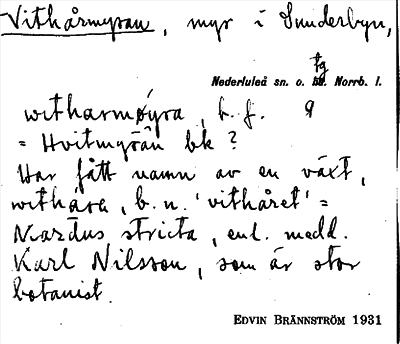 Vithårmyran, myr i Sunderbyn,
tg
Nederluleå sn. o. hd. Norrb. l.
witharmøyra, b. f. 9
= Hvitmyrån bk ?
Har fått namn av en växt,
withåra, b. n. 'vithåret' =
Nardus stricta, enl. medd.
Karl Nilsson, som är stor
botanist.
EDVIN BRÄNNSTRÖM 1931